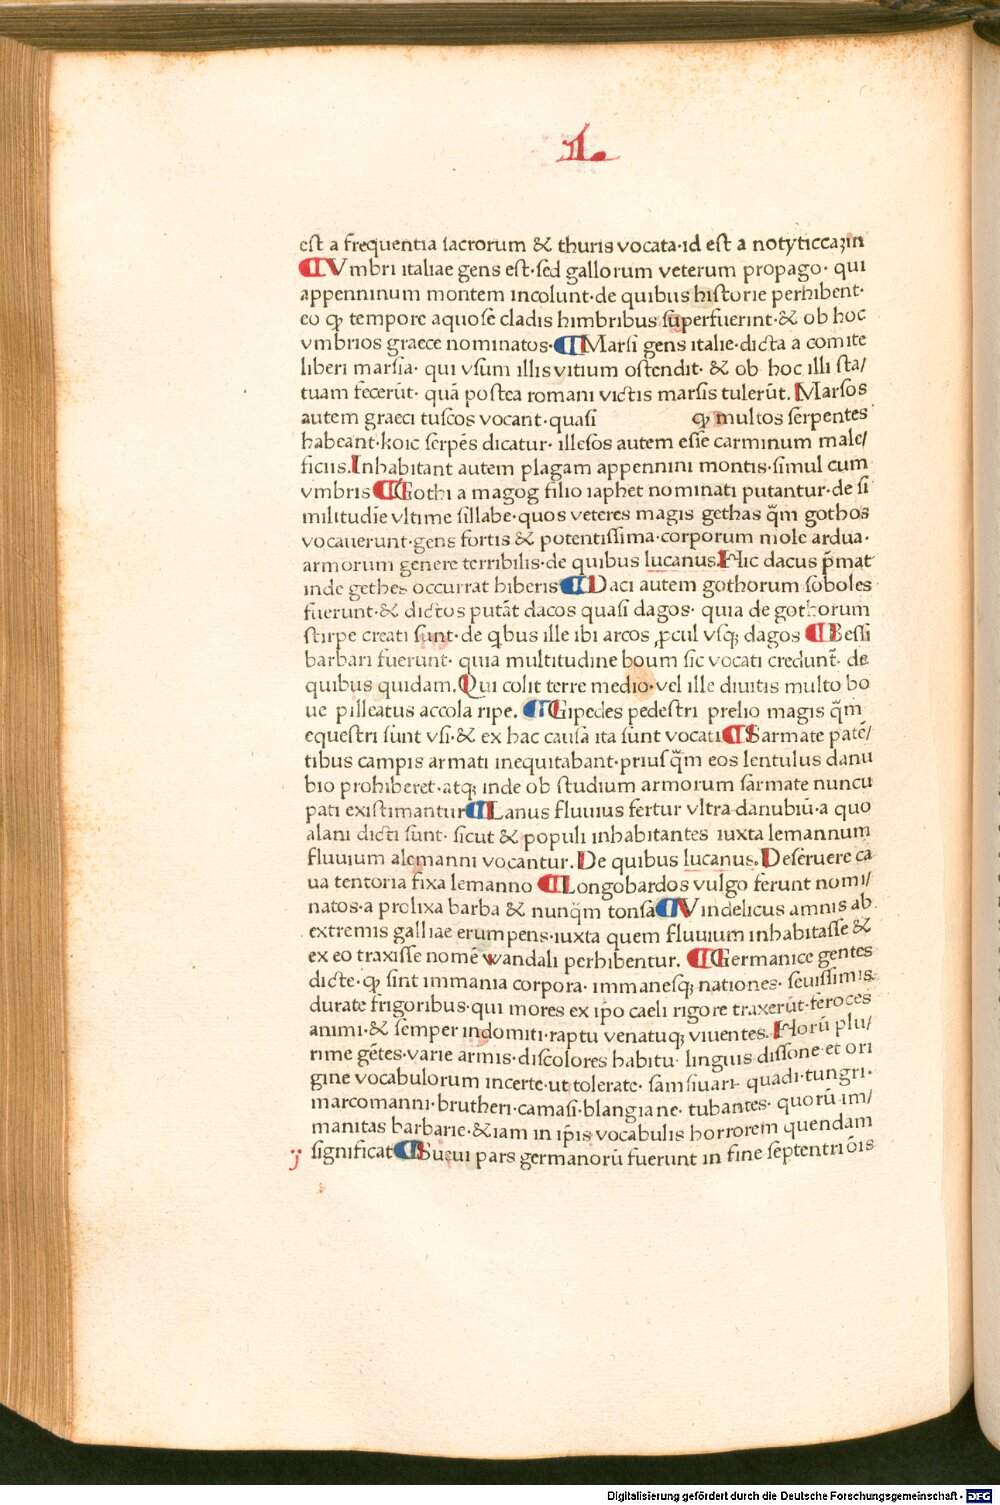 L.
est a frequentia sacrorum & thuris vocata·id est a notyticcazin
Vmbri italiae gens est·sed gallorum veterum propago· qui
appenninum montem incolunt·de quibus historie perhibent·
eo ꝙ tempore aquose cladis himbribus superfuerint·& ob hoc
vmbrios graece nominatos· Marsi gens italie·dicta a comite
liberi marsia· qui vsum illis vitium ostendit· & ob hoc illi sta/
tuam fecerūt· quā postea romani victis marsis tulerūt. Marsos
autem graeci tuscos vocant·quasi ꝙ multos serpentes
habeant·koic serpēs dicatur· illesos autem esse carminum male/
ficiis. Inhabitant autem plagam appennini montis·simul cum
vmbris Gothi a magog filio iaphet nominati putantur·de si
militudīe vltime sillabe·quos veteres magis gethas q̄m gothos
vocauerunt·gens fortis & potentissima·corporum mole ardua·
armorum genere terribilis·de quibus lucanus. Hic dacus p̄mat
inde gethes occurrat hiberis Daci autem gothorum soboles
fuerunt·& dictos putāt dacos quasi dagos· quia de gothorum
stirpe creati sunt·de qbus ille ibi arcos ꝓcul vsqꝫ dagos Bessi
barbari fuerunt· quia multitudine boum sic vocati credunt̄· de
quibus quidam. Qui colit terre medio·vel ille diuitis multo bo
ue pilleatus accola ripe. Gipedes pedestri prelio magis q̄m
equestri sunt vsi·& ex hac causa ita sunt vocati Sarmate patē/
tibus campis armati inequitabant·prius q̄m eos lentulus danu
bio prohiberet·atqꝫ inde ob studium armorum sarmate nuncu
pati existimantur Lanus fluuius fertur vltra danubiū·a quo
alani dicti sunt· sicut & populi inhabitantes iuxta lemannum
fluuium alemanni vocantur. De quibus lucanus. Deseruere ca
ua tentoria fixa lemanno Longobardos vulgo ferunt nomi/
natos·a prolixa barba & nunq̄m tonsa Vindelicus amnis ab
extremis galliae erumpens·iuxta quem fluuium inhabitasse &
ex eo traxisse nomē wandali perhibentur. Germanice gentes
dicte·ꝙ sint immania corpora· immanesqꝫ nationes· seuissimis
durate frigoribus·qui mores ex ip̄o caeli rigore traxerūt·feroces
animi·& semper indomiti·raptu venatuqꝫ viuentes. Horū plu/
rime gētes·varie armis·discolores habitu· linguis dissone·et ori
gine vocabulorum incerte·ut tolerate· samsiuari· quadi·tungri·
marcomanni·brutheri·camasi·blangiane· tubantes· quorū im/
manitas barbarie·&iam in ip̄is vocabulis horrorem quendam
significat Sueui pars germanorū fuerunt in fine septentriōis
Digitalisierung gefördert durch die Deutsche Forschungsgemeinschaft - DFG